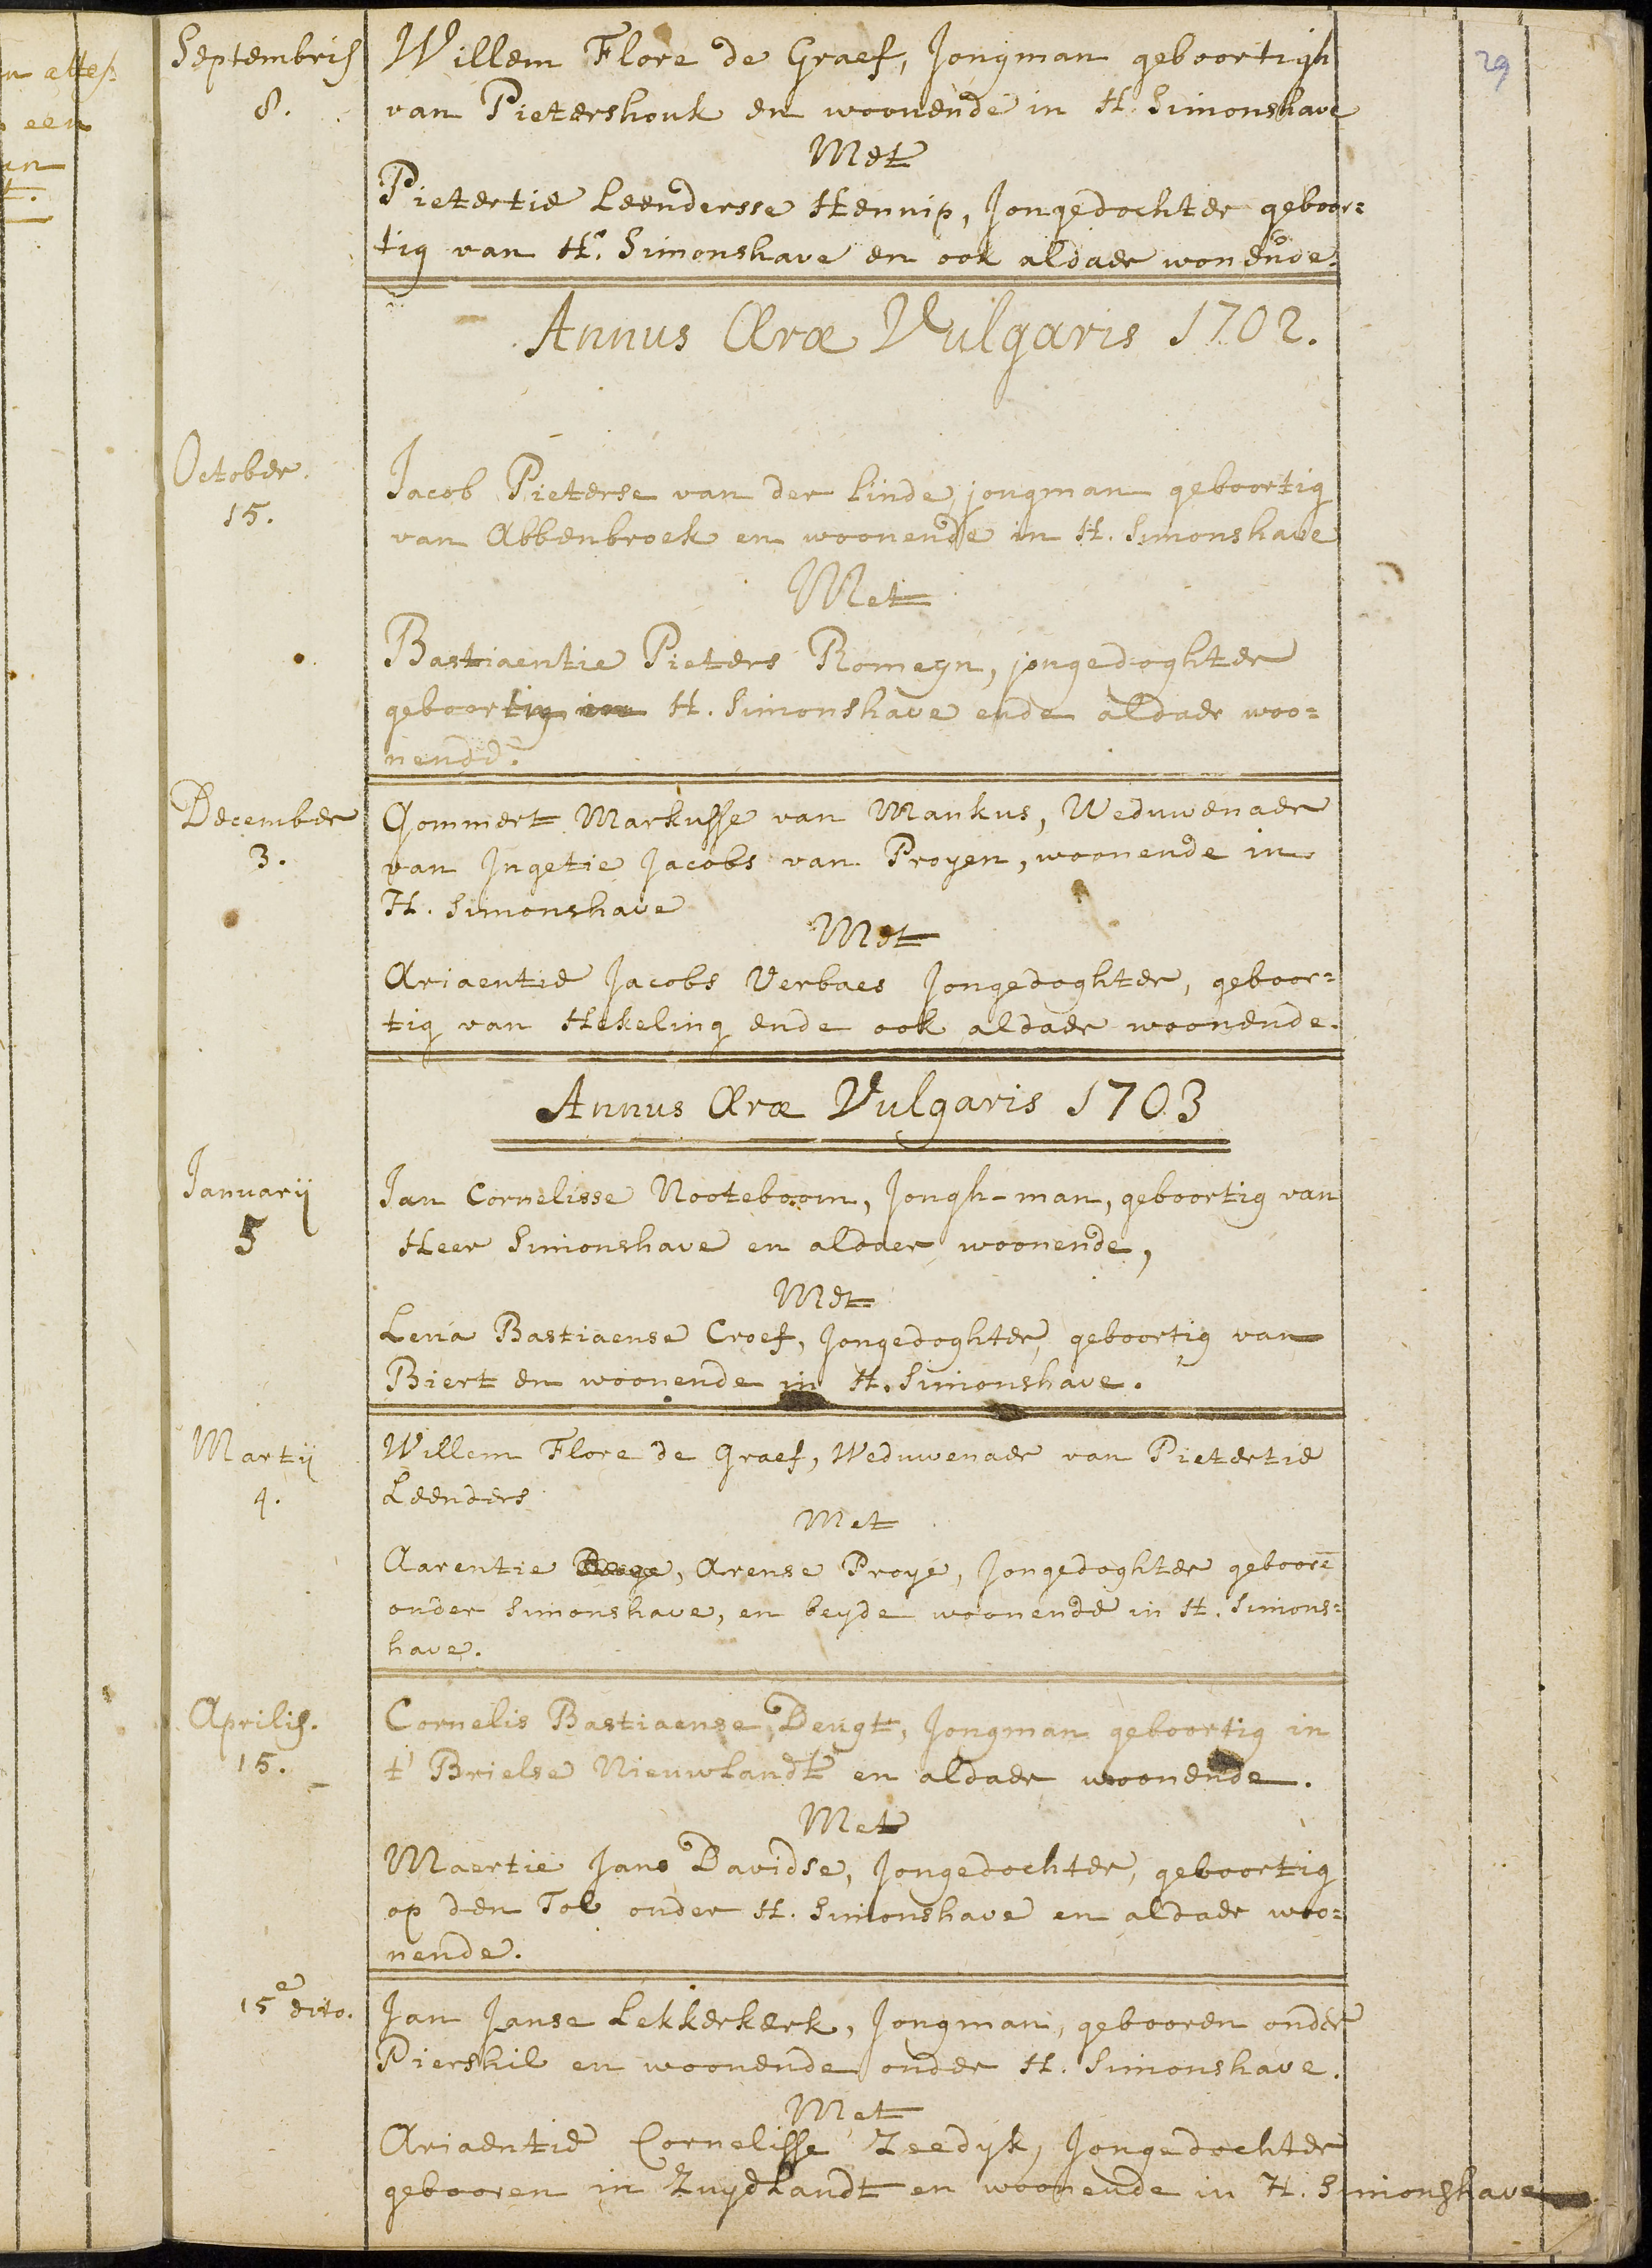 n attes:
een
an
t.
29
Septembris
8.
Willem Flore de Graef, Jongman geboortigh
van Pietershouk en woonende in H. Simonshave
Met
Pietertie Leendersse Hennip, Jongedochter geboor=
tig van Hr. Simonshave en ook aldaer wonende.
Annus Æræ Vulgaris 1702.
October.
15.
Jacob Pieterse van der Linde, jongman geboortig
van Abbenbroek en woonende in H. Simonshave
Met
Bastiaentie Pieters Romeyn, jongedoghter
geboortig in H. Simonshave ende aldaer woo=
nende.
December
3.
Gommert Markusse van Mankus, Weduwenaer
van Ingetie Jacobs van Proyen, woonende in
H. Simonshave
Met
Ariaentie Jacobs Verbaes Jongedoghter, geboor=
tig van Hekeling ende ook aldaer woonende.
Annus Æræ Vulgaris 1703
Januarij
5
Jan Cornelisse Nooteboom, Jongh-man, geboortig van
Heer Simonshave en aldaer woonende,
Met
Lena Bastiaense Croef, Jongedoghter, geboortig van
Biert en woonende in H. Simonshave.
Martij
4.
Willem Flore de Graef, Weduwenaer van Pietertie
Leenders
Met
Aarentie , Arense Proye, Jongedoghter geboorē
onder Simonshave, en beyde woonende in H. Simons=
have.
Aprilis.
15.
Cornelis Bastiaense Deugt, Jongman geboortig in
t' Brielse Nieuwlandt en aldaer woonende.
Met
Maertie Jans Davidse, Jongedochter, geboortig
op den Tol onder H. Simonshave en aldaer woo=
nende.
15e dito.
Jan Janse Lekkerkerk, Jongman, gebooren onder
Piershil en woonende onder H. Simonshave.
Met
Ariaentie Cornelisse Zeedyk, Jongedochter
gebooren in Zuydlandt en woonende in H. Simonshave